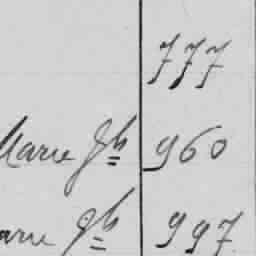 777
Marie Jh 960
arie Jh 997